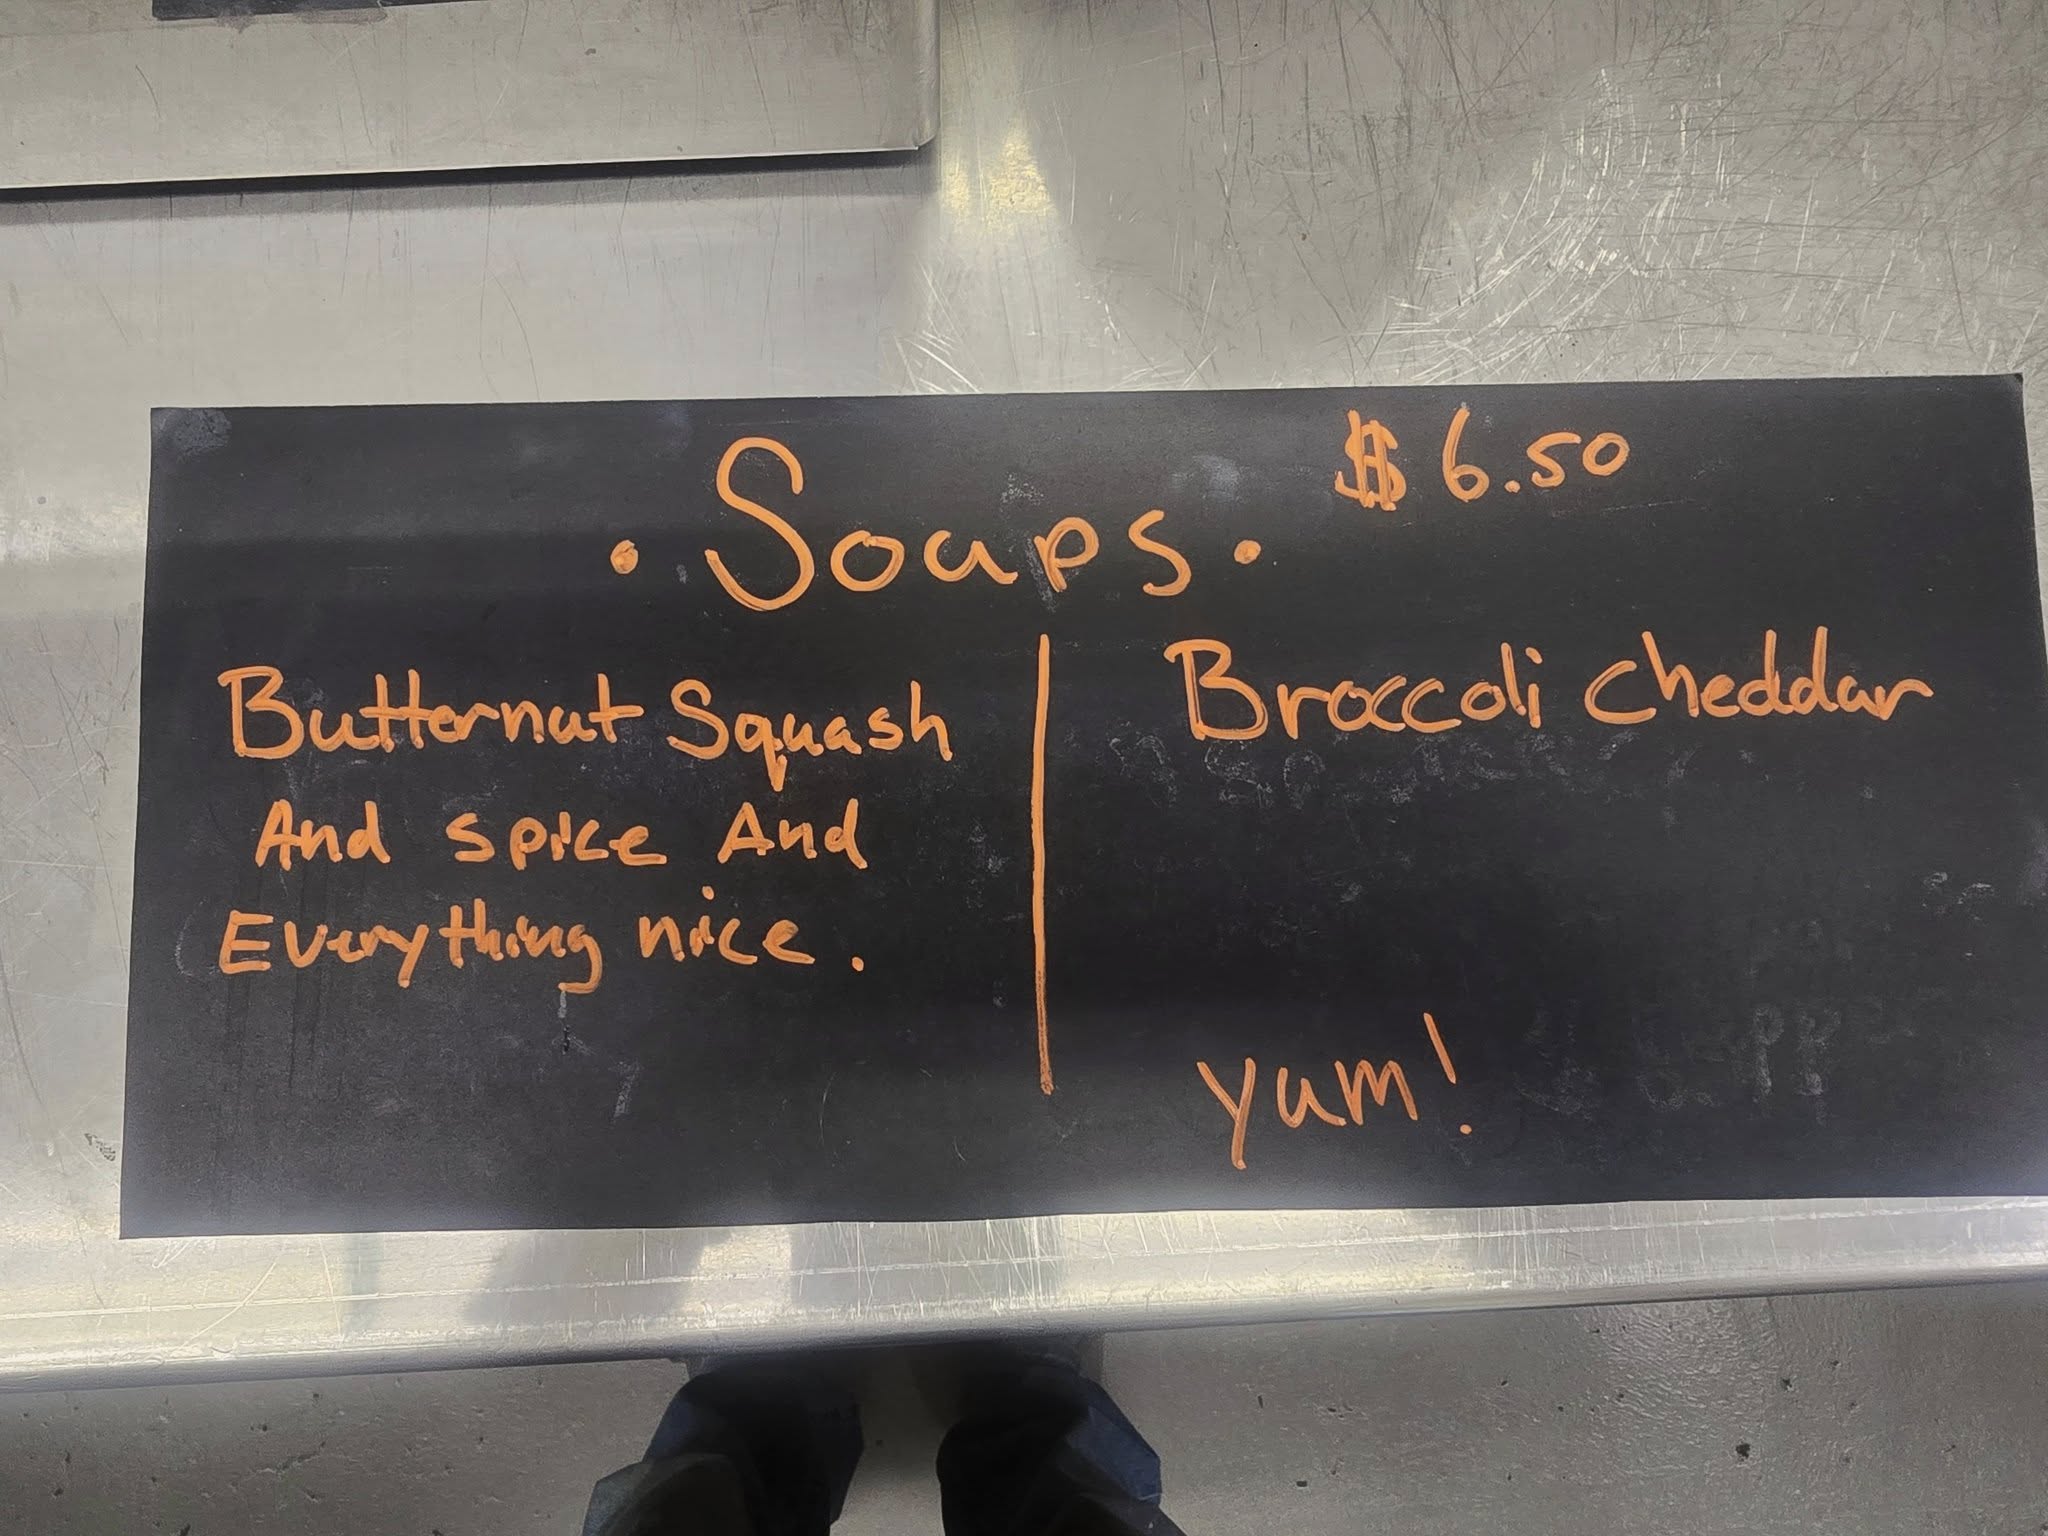 . Soaps. $6.50
Butternut Squash
And spice And
Everything nice.
Broccoli cheddar
yum!